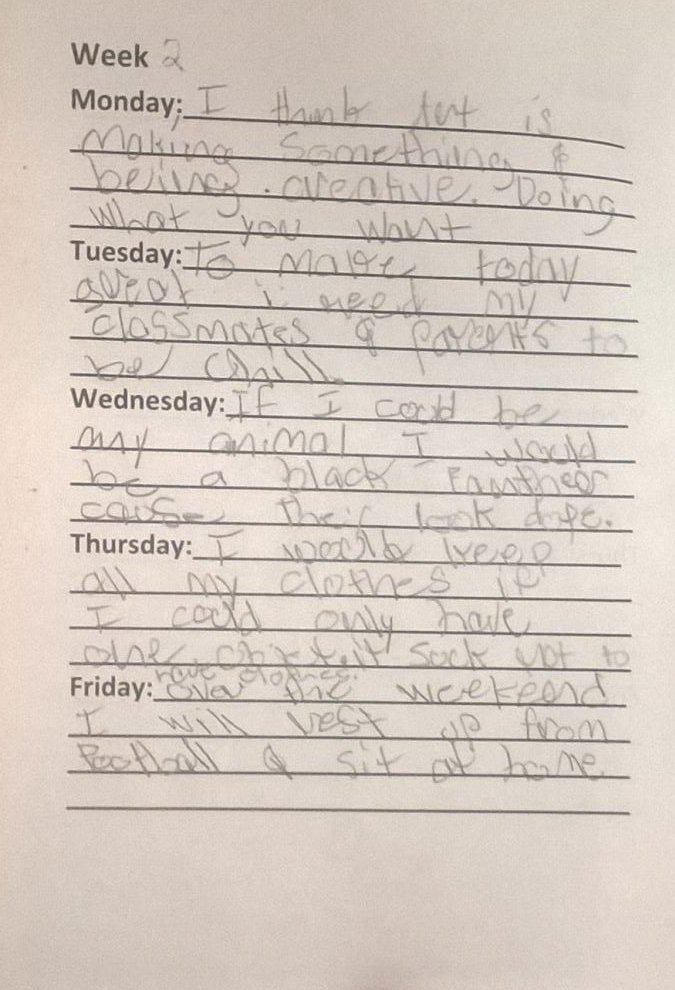 Week 2
Monday: I think art is
Making Something &
being creative. Doing
what you want
Tuesday: To make today
great i need my
classmates & parents to
be chill
Wednesday: If I could be
any animal I would
be a black Panther
cause their look dope.
Thursday: I would keep
all my clothes if
I could only have
one it suck not to
have clothes.
Friday: over the weekend
I will rest up from
football & sit at home